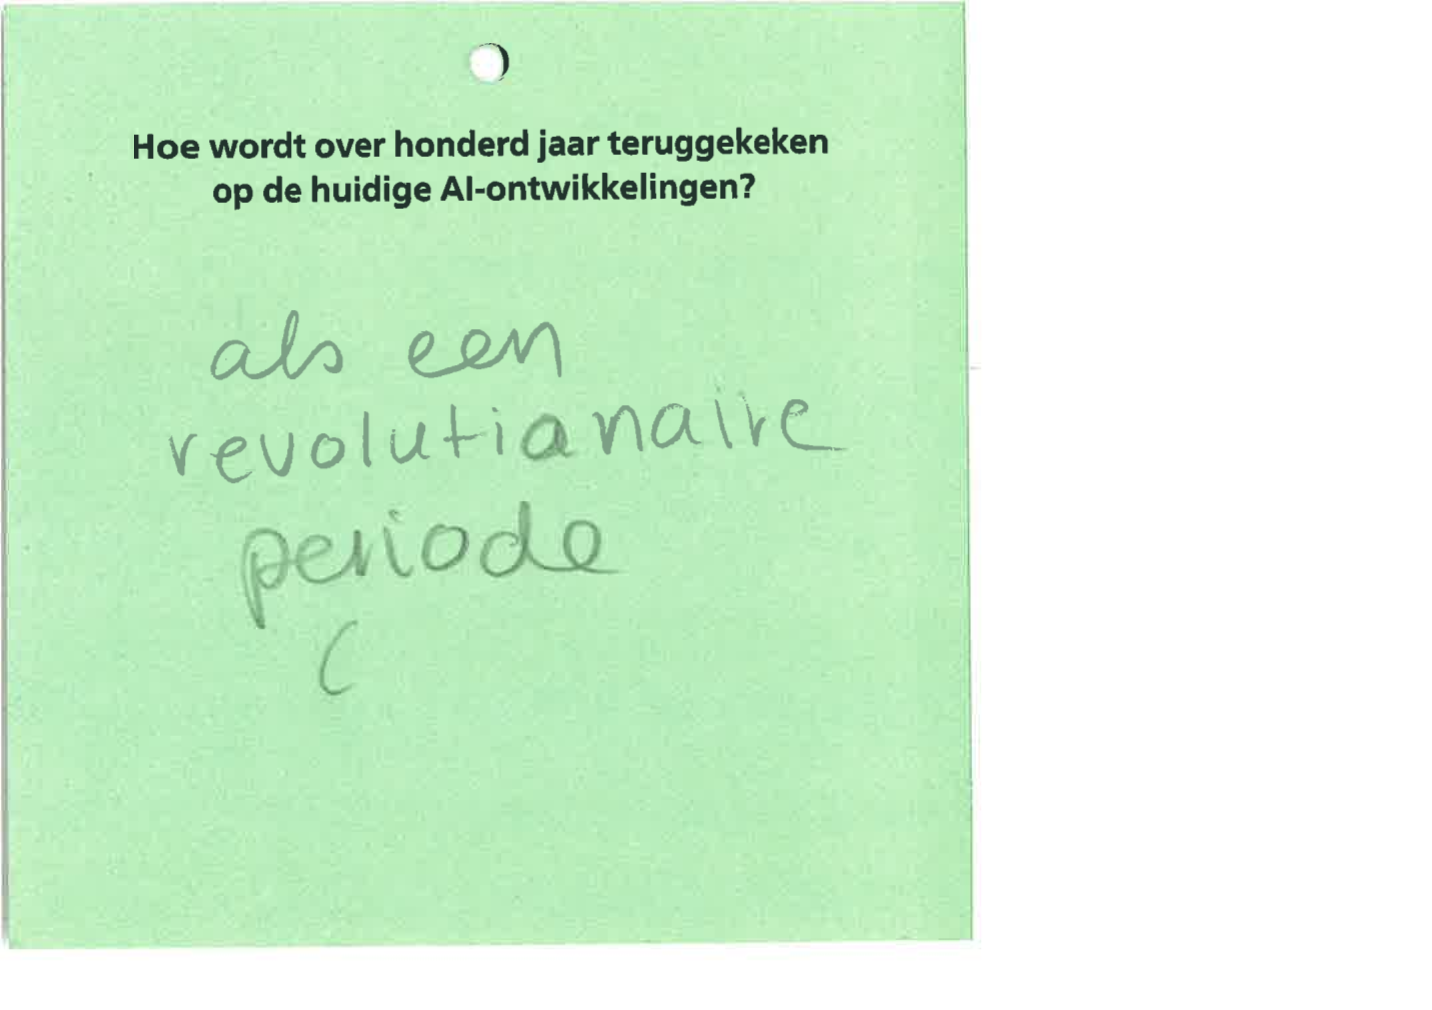 Hoe wordt over honderd jaar teruggekeken
op de huidige AI-ontwikkelingen?
als een
revolutianaire
periode
(